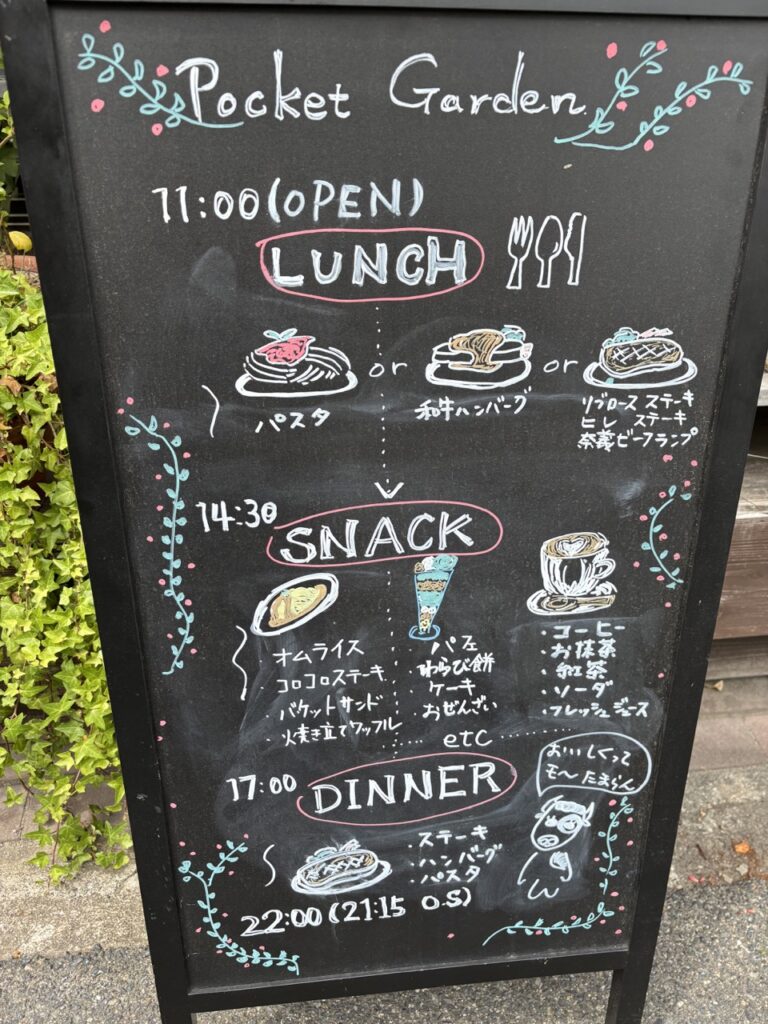 Pocket Garden
11:00(OPEN)
LUNCH
or
or
パスタ
和牛ハンバーグ
リブロース ステーキ
ヒレ ステーキ
奈義ビーフランプ
14:30
SNACK
・オムライス
・コロコロステーキ
・バケットサンド
・焼き立てワッフル
・パフェ
わらび餅
・ケーキ
・おぜんざい
・コーヒー
・お抹茶
・紅茶
・ソーダ
・フレッシュジュース
etc
17:00
DINNER
おいしくって
モ〜たまらん
・ステーキ
・ハンバーグ
・パスタ
22:00(21:15 O.S)